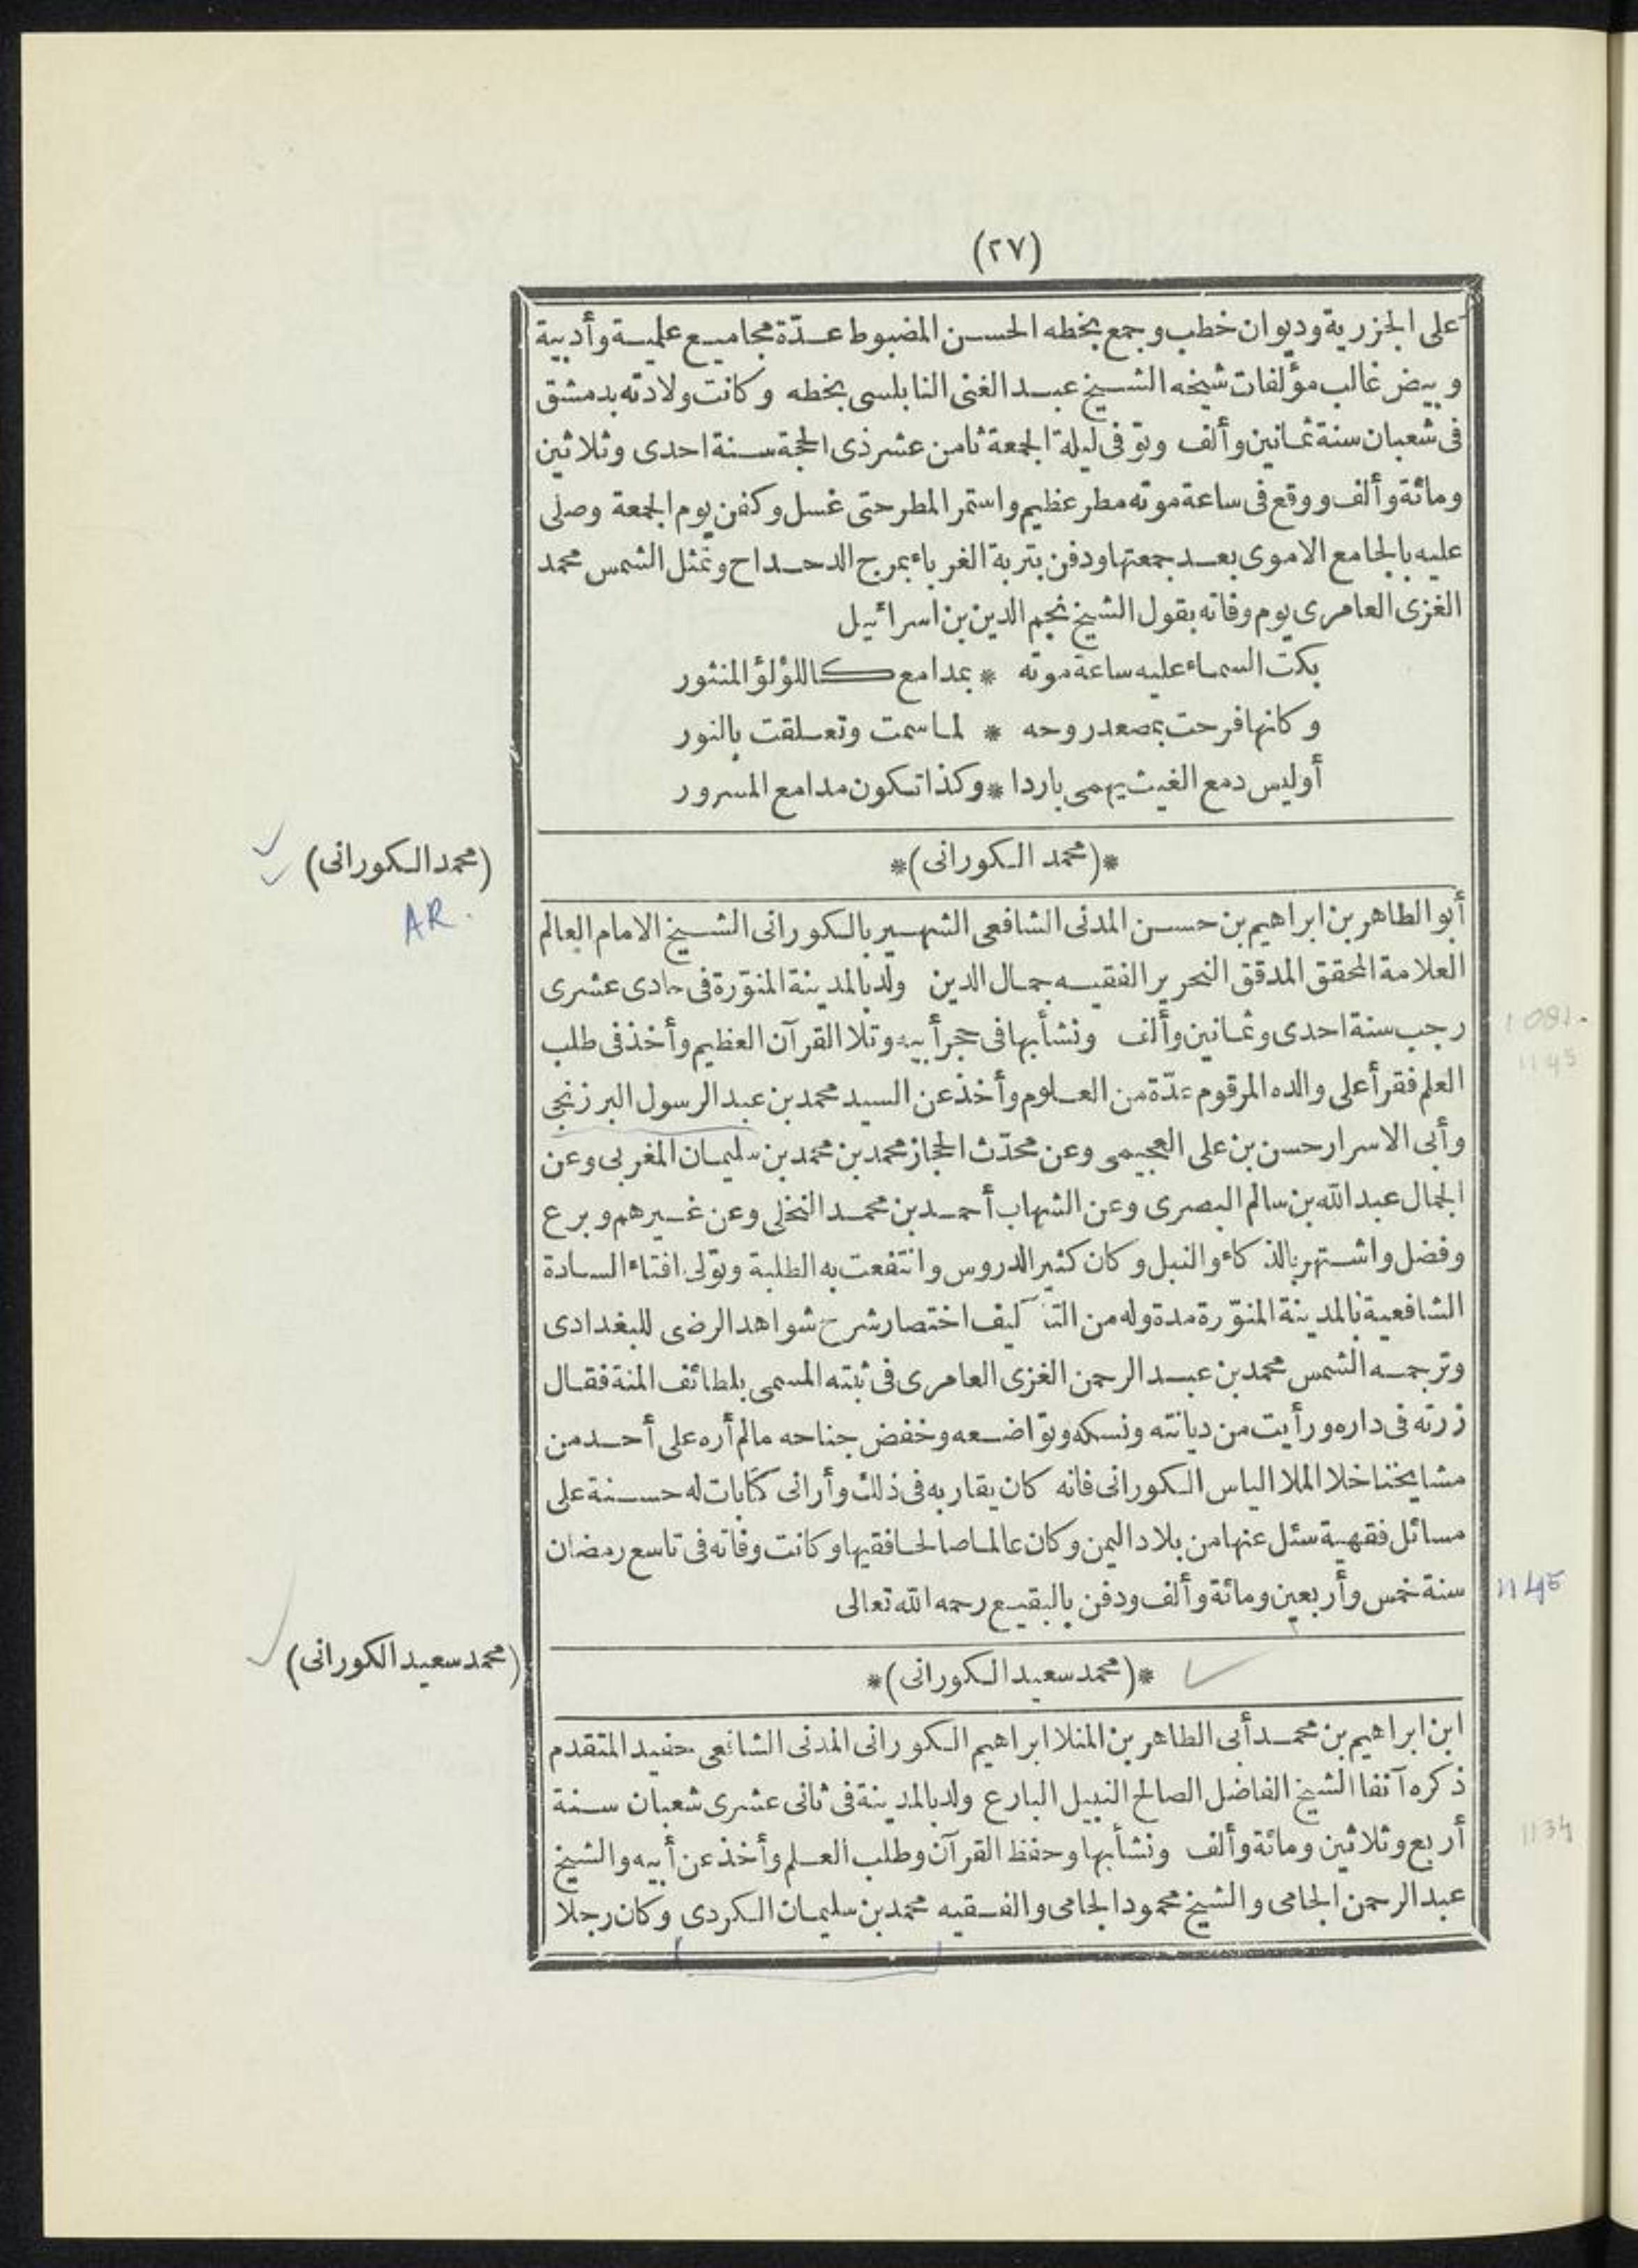 (٢٧)
على الجزرية وديوان خطب وجمع بخطه الحسن المضبوط عدّة مجاميع علمية وأدبية
وبيض غالب مؤلفات شيخه الشيخ عبد الغنى النابلسى بخطه وكانت ولادته بدمشق
فى شعبان سنة ثمانين وألف وتوفى ليلة الجمعة ثامن عشر ذى الحجة سنة احدى وثلاثين
ومائة وألف ووقع فى ساعة موته مطر عظيم واستمر المطر حتى غسل وكفن يوم الجمعة وصلى
عليه بالجامع الاموى بعد جمعتها ودفن بتربة الغرباء بمرج الدحداح وتمثل الشمس محمد
الغزى العامرى يوم وفاته بقول الشيخ نجم الدين بن اسرائيل
بكت السماء عليه ساعة موته * بمدامع كاللؤلؤ المنثور
وكانها فرحت بمصعد روحه * لما سمت وتعلقت بالنور
أوليس دمع الغيث يهمى باردا * وكذا تكون مدامع المسرور
*(محمد الكورانى)*
(محمد الكورانى)
AR.
أبو الطاهر بن ابراهيم بن حسن المدنى الشافعى الشهير بالكورانى الشيخ الامام العالم
العلامة المحقق المدقق النحرير الفقيه جمال الدين ولد بالمدينة المنوّرة فى حادى عشرى
رجب سنة احدى وثمانين وألف ونشأ بها فى حجر أبيه وتلا القرآن العظيم وأخذ فى طلب
1081.
1145
العلم فقرأ على والده المرقوم عدّة من العلوم وأخذ عن السيد محمد بن عبد الرسول البرزنجى
وأبى الاسرار حسن بن على العجيمى وعن محدّث الحجاز محمد بن محمد بن سليمان المغربى وعن
الجمال عبد الله بن سالم البصرى وعن الشهاب أحمد بن محمد النخلى وعن غيرهم وبرع
وفضل واشتهر بالذكاء والنبل وكان كثير الدروس وانتفعت به الطلبة وتولى افتاء السادة
الشافعية بالمدينة المنوّرة مدة وله من التآليف اختصار شرح شواهد الرضى للبغدادى
وترجمه الشمس محمد بن عبد الرحمن الغزى العامرى فى ثبته المسمى بلطائف المنة فقال
زرته فى داره ورأيت من ديانته ونسكه وتواضعه وخفض جناحه مالم أره على أحد من
مشايخنا خلا الملا الياس الكورانى فانه كان يقاربه فى ذلك وأرانى كتابات له حسنة على
مسائل فقهية سئل عنها من بلاد اليمن وكان عالما صالحا فقيها وكانت وفاته فى تاسع رمضان
سنة خمس وأربعين ومائة وألف ودفن بالبقيع رحمه الله تعالى
1145
*(محمد سعيد الكورانى)*
(محمد سعيد الكورانى)
ابن ابراهيم بن محمد أبى الطاهر بن المنلا ابراهيم الكورانى المدنى الشافعى حفيد المتقدم
ذكره آنفا الشيخ الفاضل الصالح النبيل البارع ولد بالمدينة فى ثانى عشرى شعبان سنة
أربع وثلاثين ومائة وألف ونشأ بها وحفظ القرآن وطلب العلم وأخذ عن أبيه والشيخ
1134
عبد الرحمن الجامى والشيخ محمود الجامى والفقيه محمد بن سليمان الكردى وكان رجلا